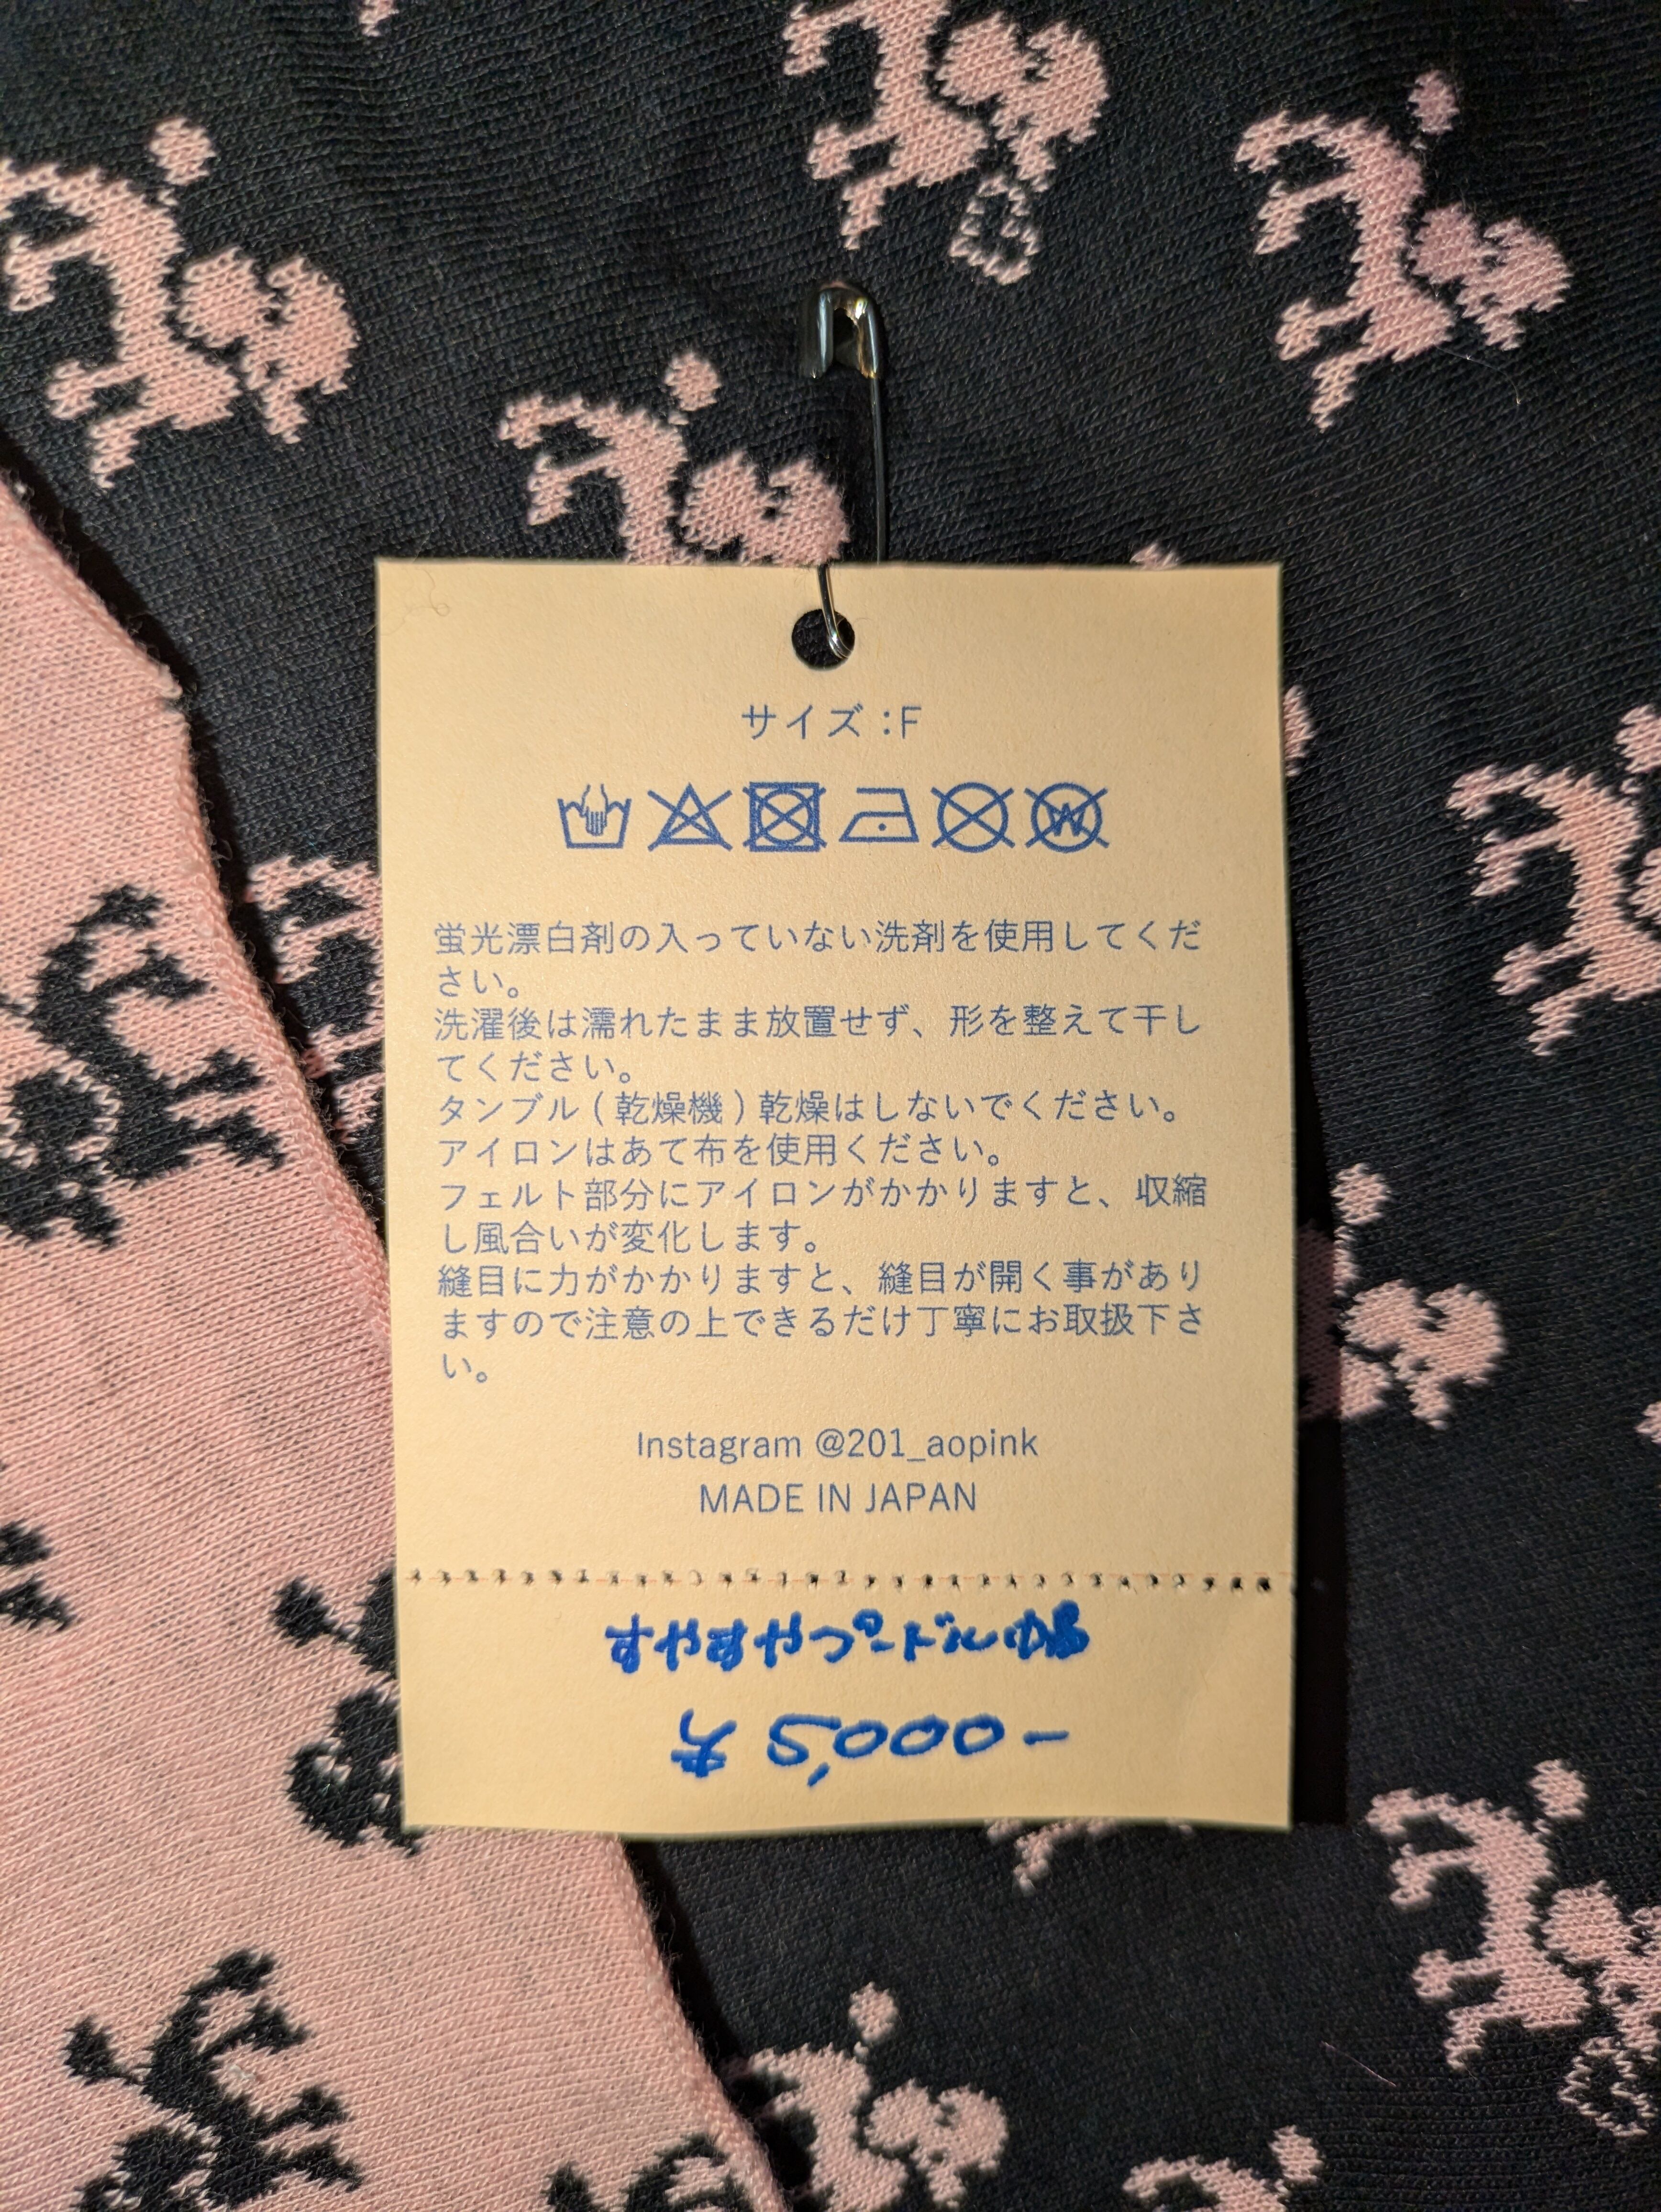 サイズ:F
W
蛍光漂白剤の入っていない洗剤を使用してくだ
さい。
洗濯後は濡れたまま放置せず、形を整えて干し
てください。
タンブル(乾燥機)乾燥はしないでください。
アイロンはあて布を使用ください。
フェルト部分にアイロンがかかりますと、収縮
し風合いが変化します。
縫目に力がかかりますと、縫目が開く事があり
ますので注意の上できるだけ丁寧にお取扱下さ
い。
Instagram @201_aopink
MADE IN JAPAN
すやすやプードル帽
¥5,000-